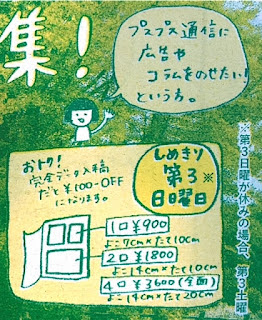 集!
プスプス通信に
広告や
コラムをのせたい!
という方。
おトク!
完全データ入稿
だと¥100-OFF
になります。
しめきり
第3※
日曜日
1口 ¥900
よこ9cm×たて10cm
2口 ¥1800
よこ14cm×たて10cm
4口 ¥3600(全面)
よこ14cm×たて20cm
※第3日曜が休みの場合、第3土曜